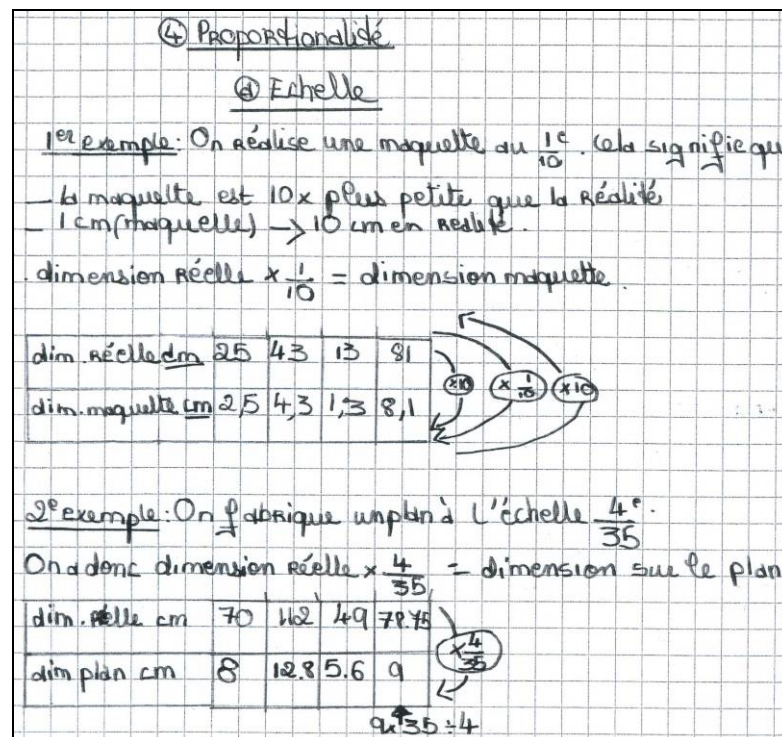 ④ PROPORtionalité
ⓓ Echelle
1er exemple: On Réalise une maquette au 1/10e. Cela signifie qu
- la maquette est 10x plus petite que la Réalité
- 1 cm (maquette) -> 10 cm en Réalité.
. dimension Réelle x 1/10 = dimension maquette.
dim. Réelle cm 25 43 13 81
dim. maquette cm 2,5 4,3 1,3 8,1
x 1/10 x10
2e exemple: On fabrique un plan à l'échelle 4/35e.
On a donc dimension Réelle x 4/35 = dimension sur le plan
dim. Réelle cm 70 112 49 78.75
dim plan cm 8 12.8 5.6 9
x 4/35
9x35÷4